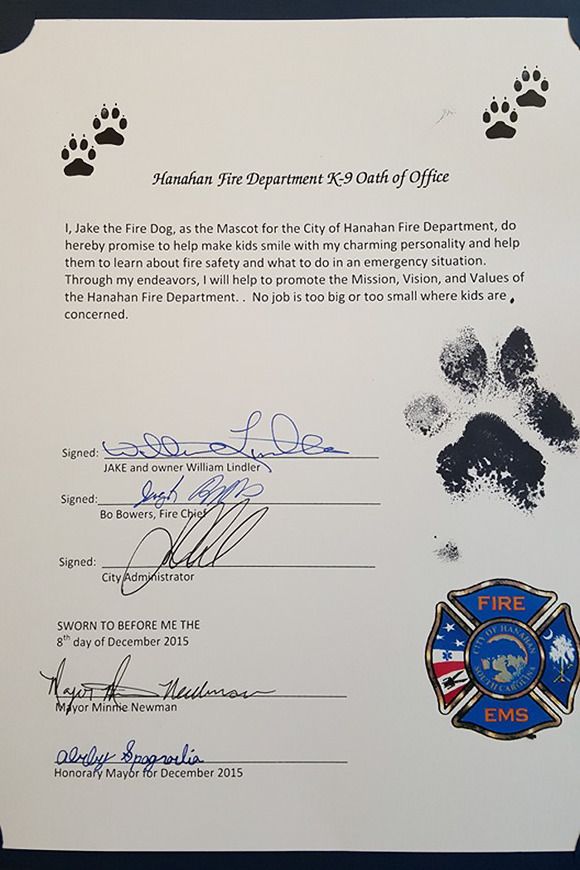 Hanahan Fire Department K-9 Oath of Office
I, Jake the Fire Dog, as the Mascot for the City of Hanahan Fire Department, do
hereby promise to help make kids smile with my charming personality and help
them to learn about fire safety and what to do in an emergency situation.
Through my endeavors, I will help to promote the Mission, Vision, and Values of
the Hanahan Fire Department. . No job is too big or too small where kids are
concerned.
Signed: William Lindler
JAKE and owner William Lindler
Signed:
Bo Bowers, Fire Chief
Signed:
City Administrator
SWORN TO BEFORE ME THE
8th day of December 2015
Mayor Minnie Newman
Mayor Minnie Newman
Honorary Mayor for December 2015
FIRE
CITY OF HANAHAN
SOUTH CAROLINA
EMS